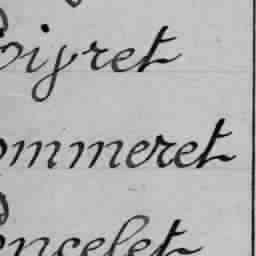 oigret
ommeret
oncelet